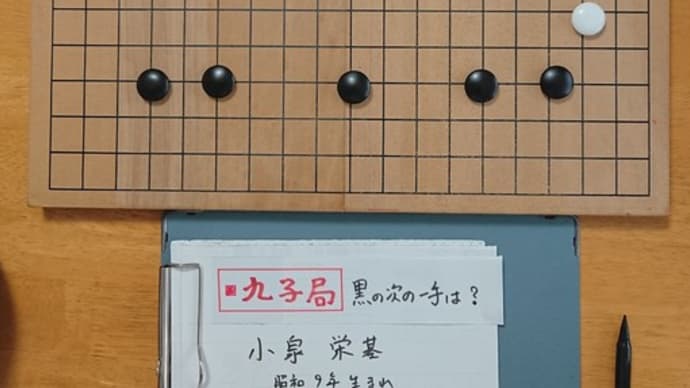 九子局 黒の次の一手は？
小泉 栄基
昭和9年生まれ